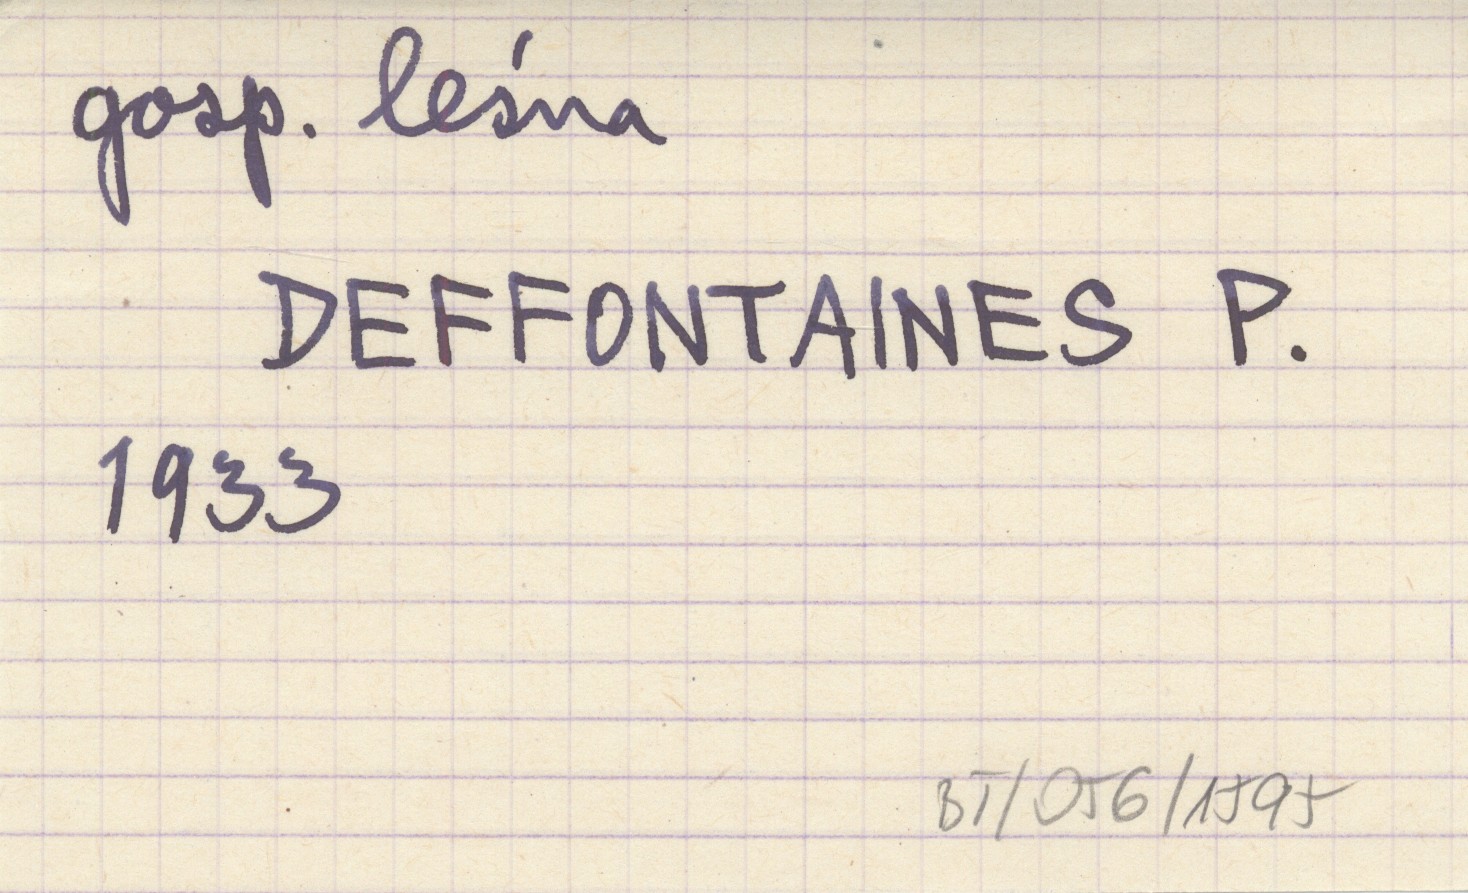 gosp. leśna
DEFFONTAINES P.
1933
BT/056/1595